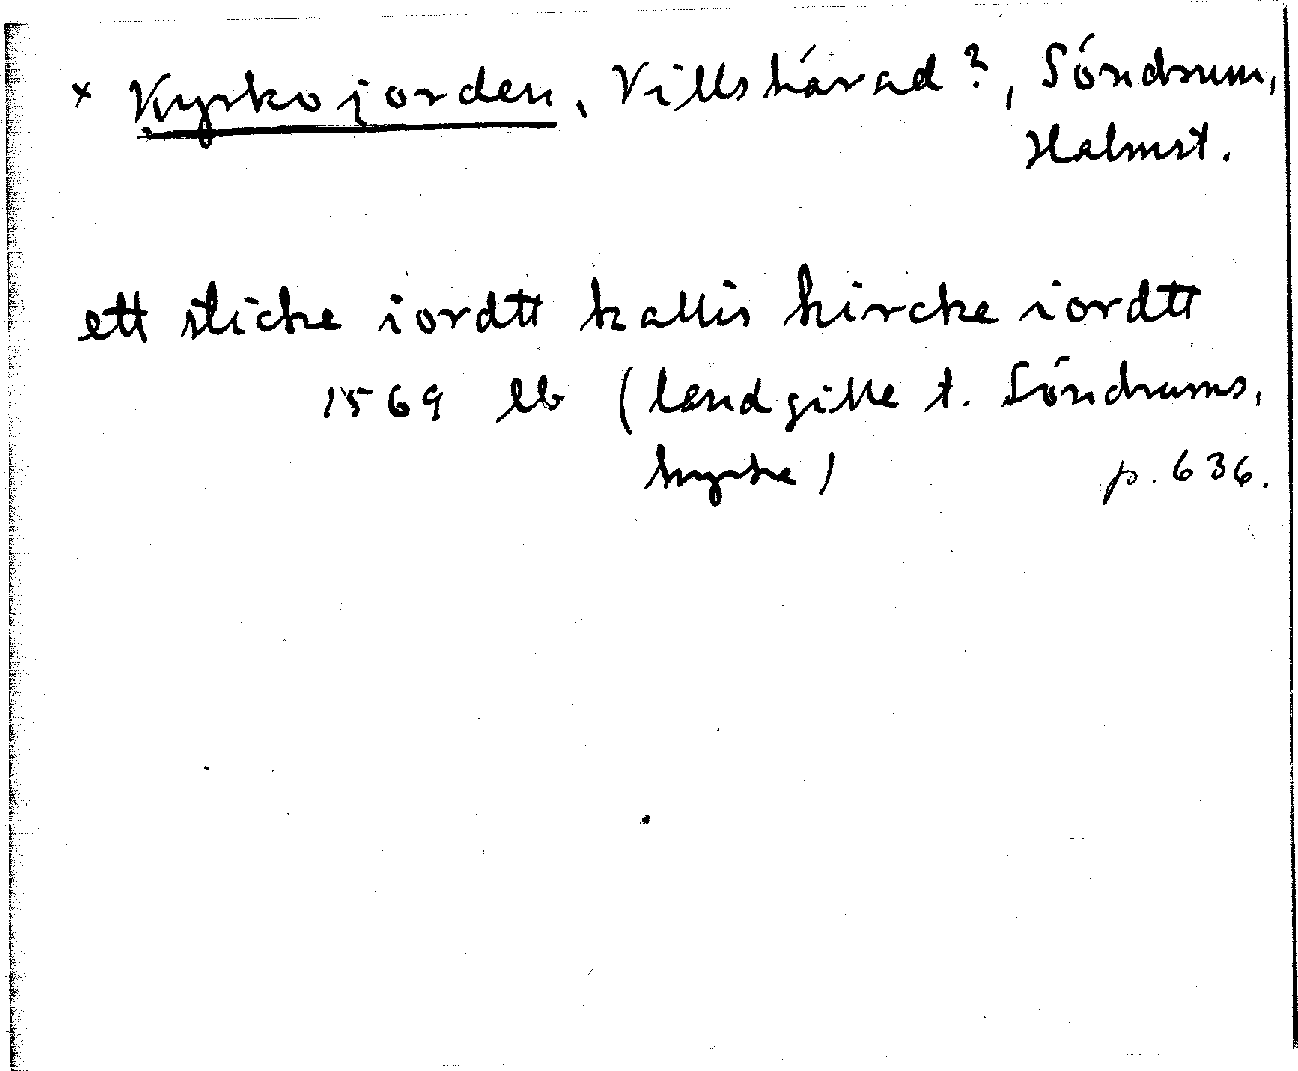 × Kyrkojorden, Villshärad?, Söndrum,
Halmst.
ett sticke iordtt kallis kircke iordtt
1569 lb (landgille t. Söndrums,
kyrke) p. 636.